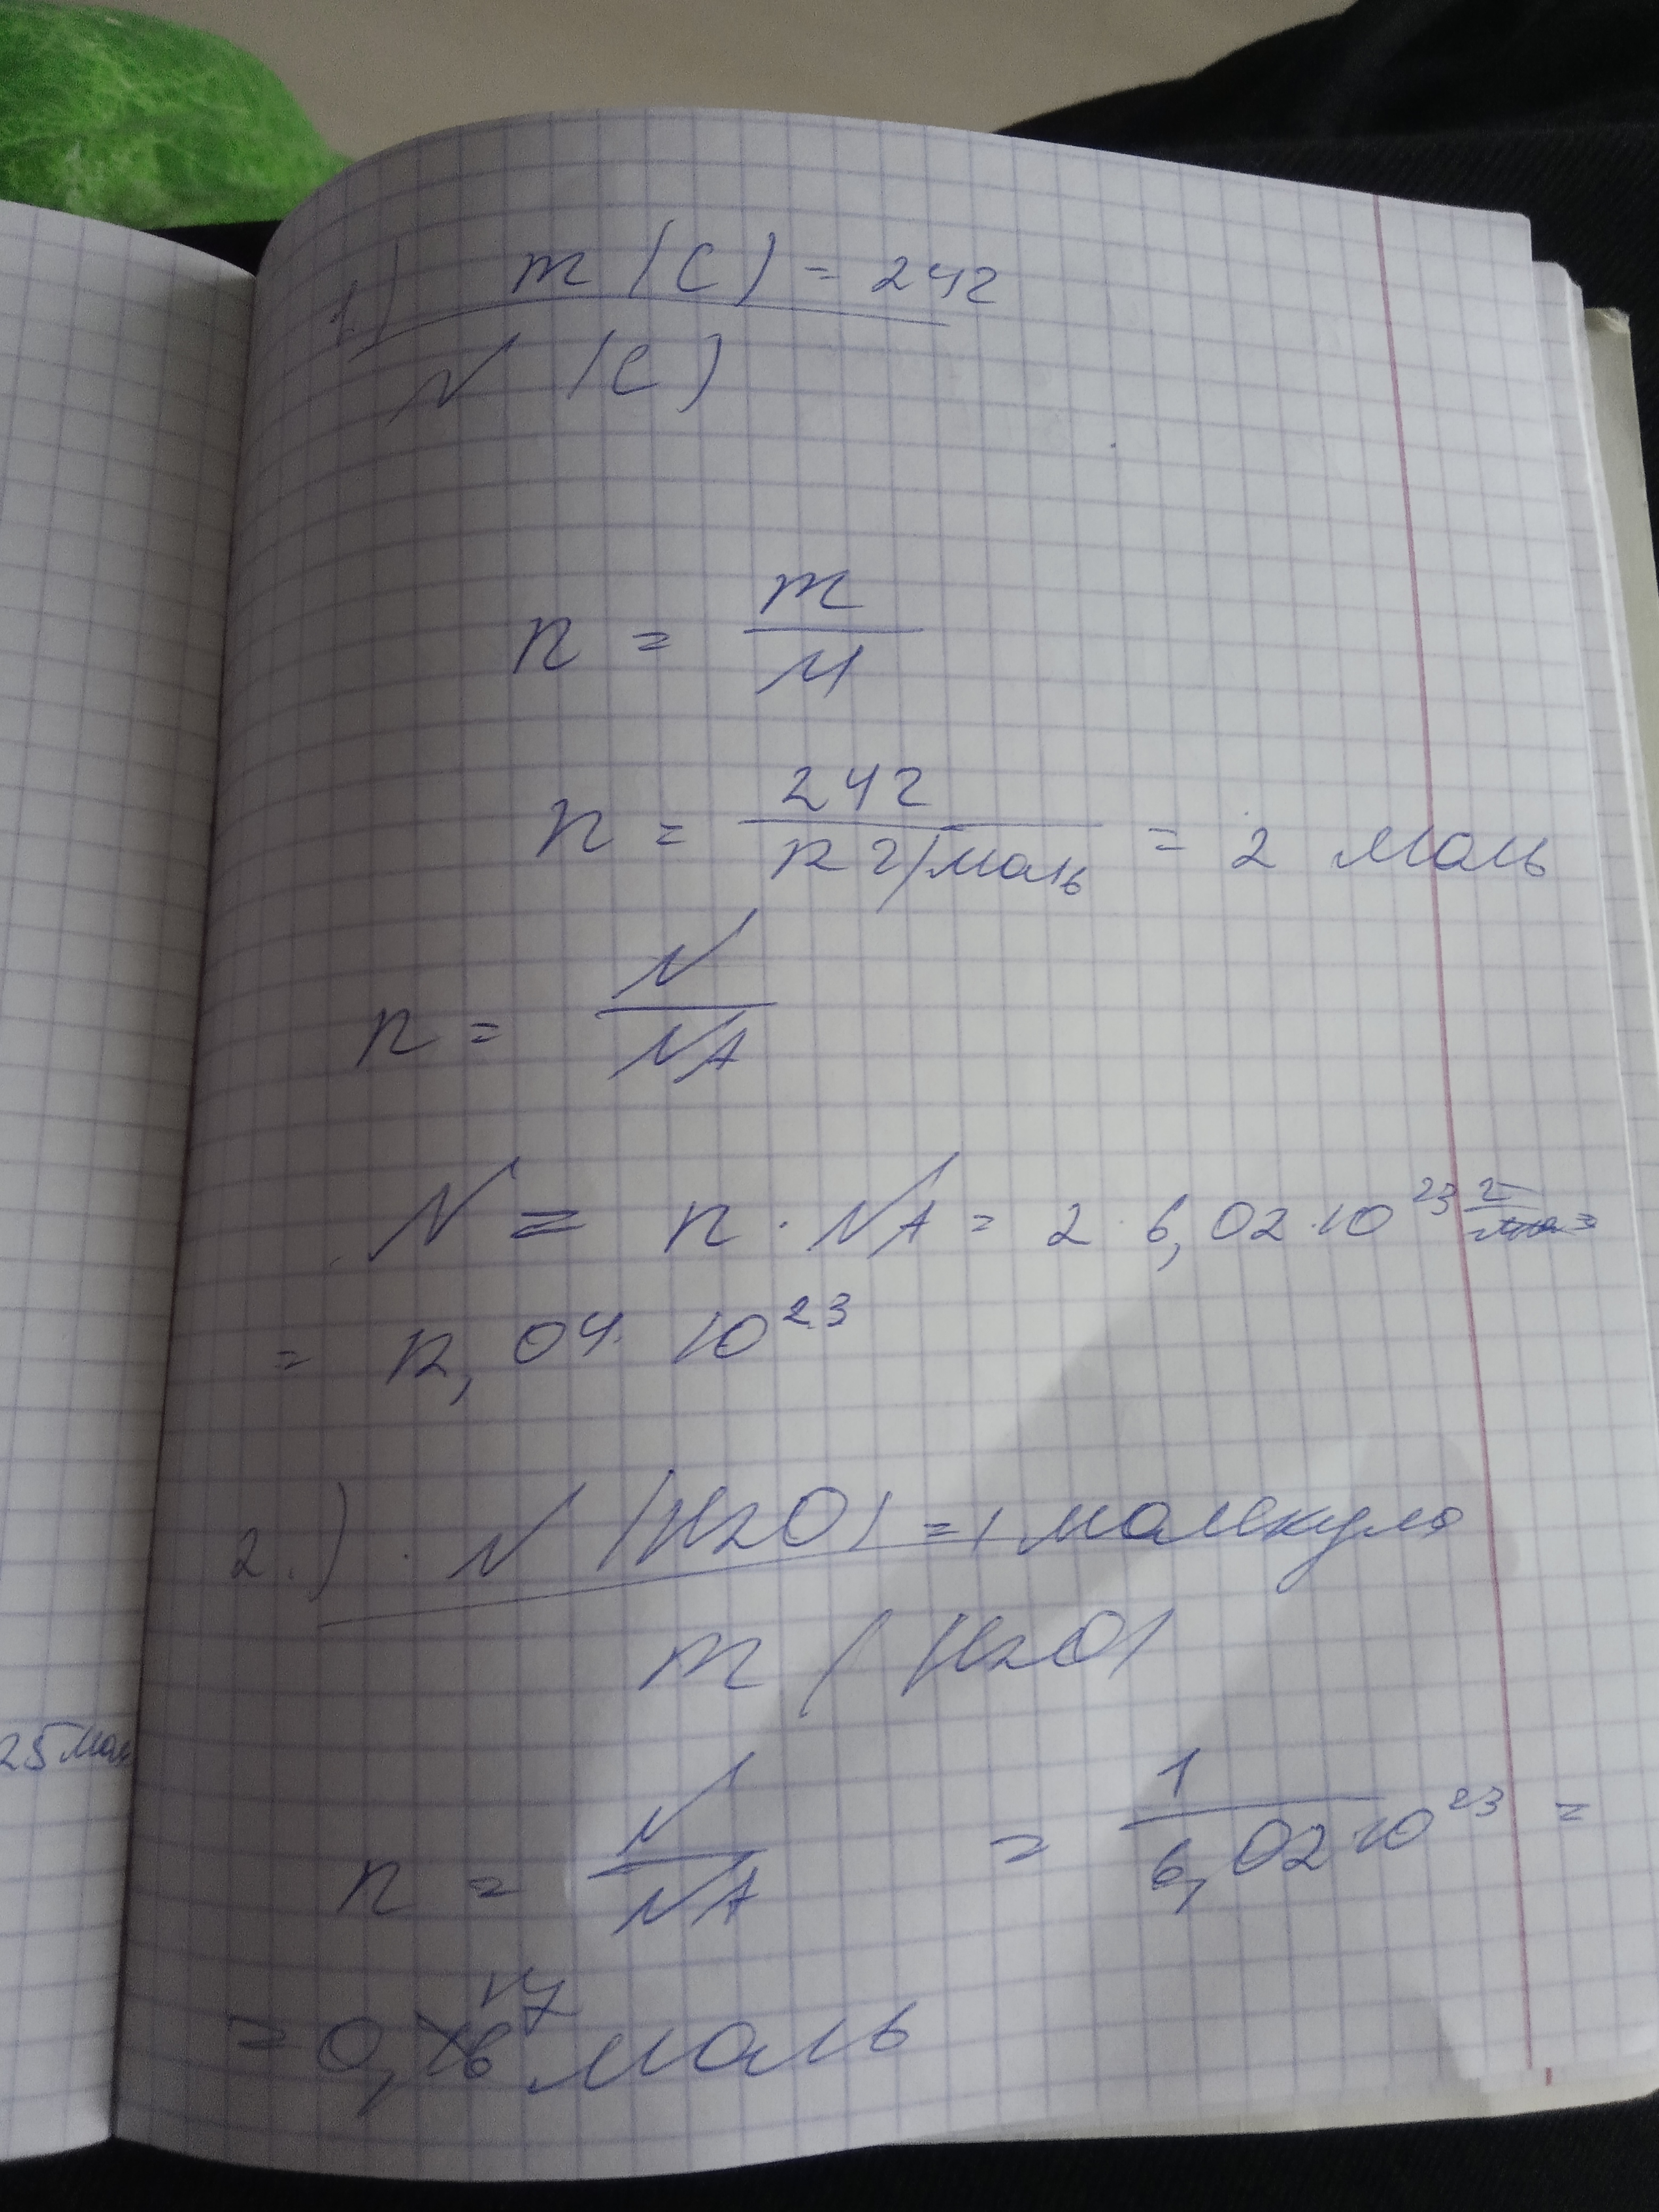 1) m (C) = 24г
N (C)
n = m/M
n = 24г / 12 г/моль = 2 моль
n = N/NA
N = n · NA = 2 · 6,02 · 10²³
= 12,04 · 10²³
2.) N (H2O) = 1 молекула
m (H2O)
n = N/NA = 1 / 6,02 · 10²³ =
= 0,17 моль
25 мол